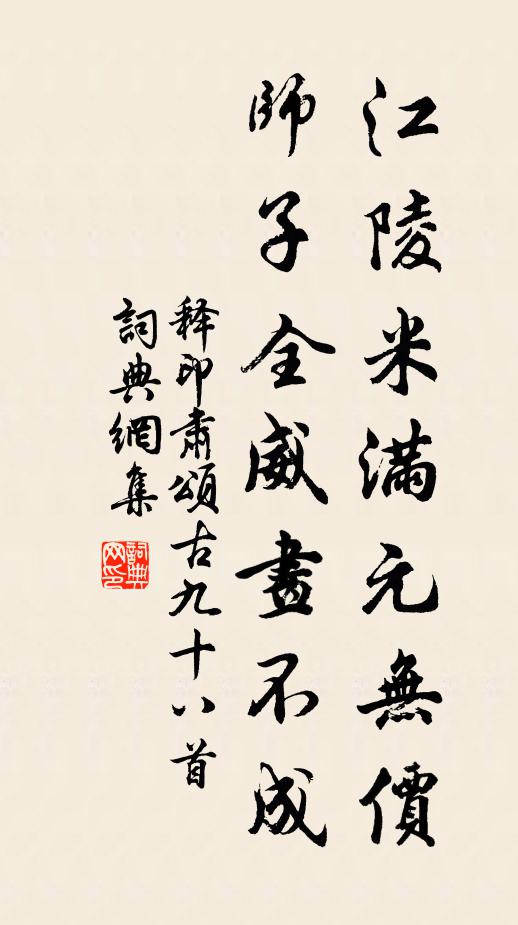 江陵米滿元無價
師子全威畫不成
释印肅頌古九十八首
詞典網集
詞典网印